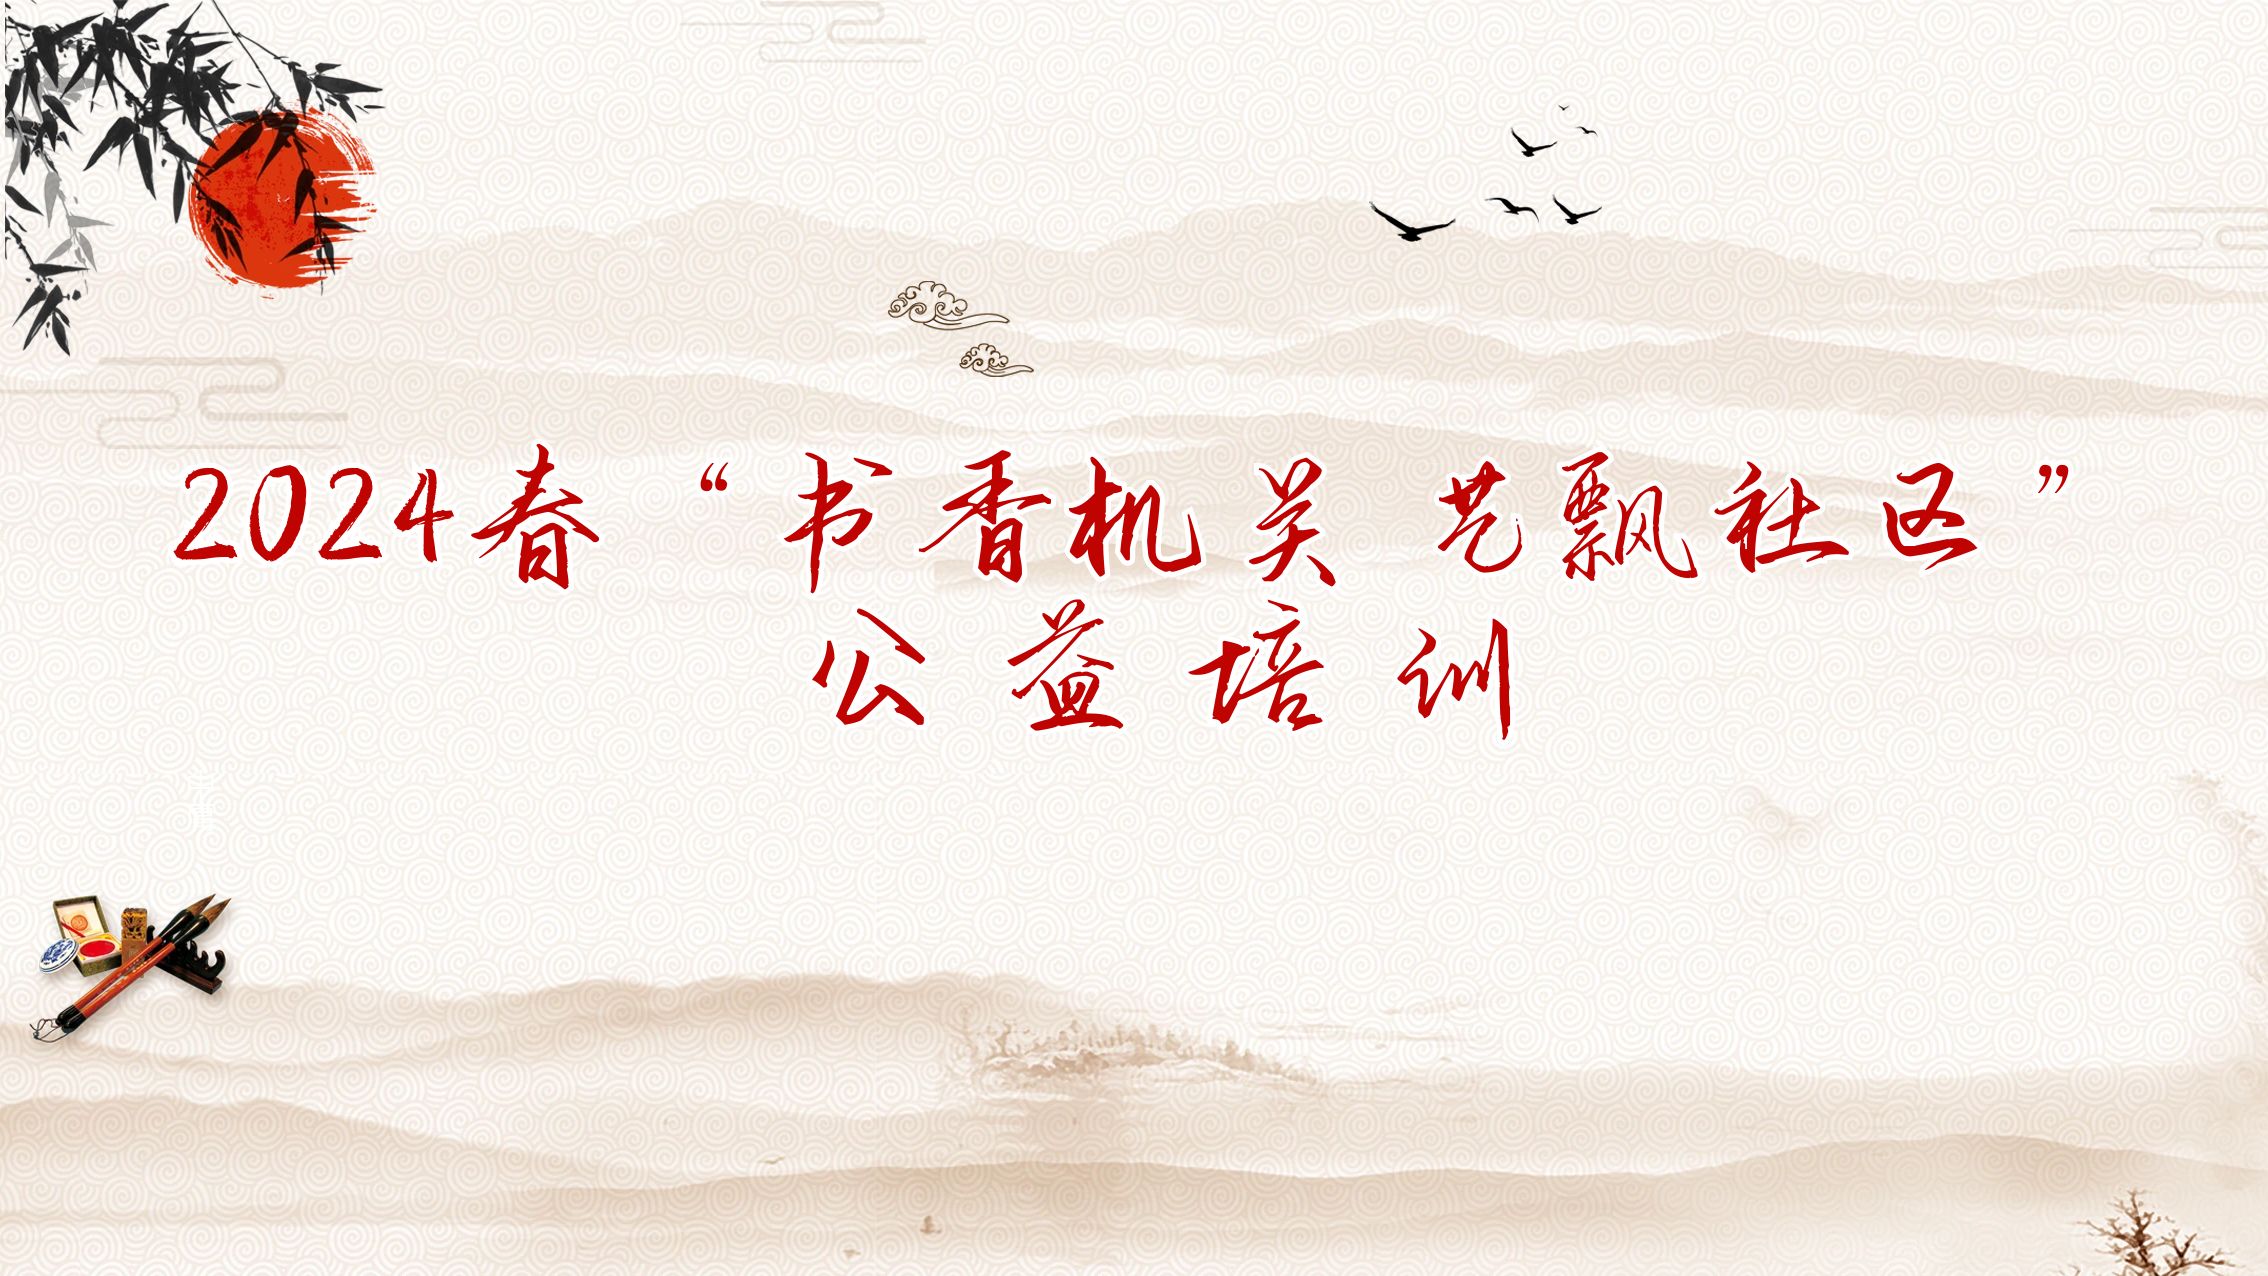 2024春“书香机关 艺飘社区”
公益培训